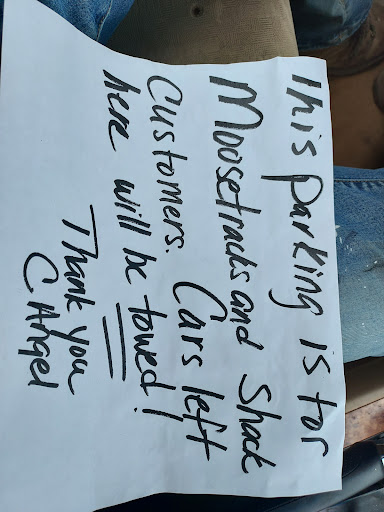 This parking is for
Moosetracks and Shack
Customers. Cars left
here will be towed!
Thank you
C Angel